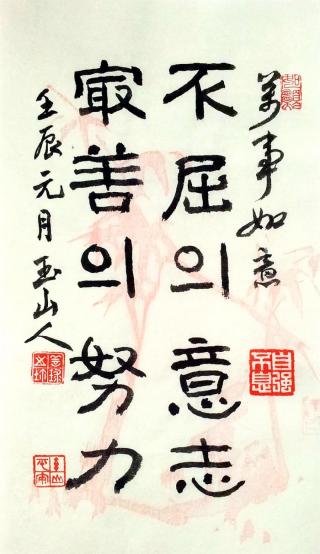 萬事如意
不屈의意志
最善의努力
壬辰元月玉山人
自強不息